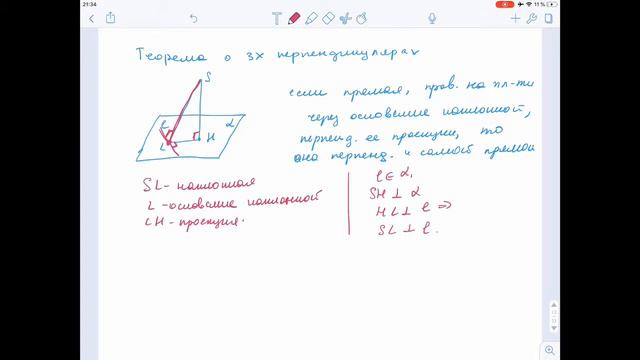 21:34
11 %
Теорема о 3х перпендикулярах
S
если прямая, пров. на пл-ти
через основание наклонной,
перпенд. ее проекции, то
она перпенд. и самой прямой
l
α
L
H
SL - наклонная
L - основание наклонной
LH - проекция.
l ∈ α,
SH ⊥ α
HL ⊥ l ⇒
SL ⊥ l.